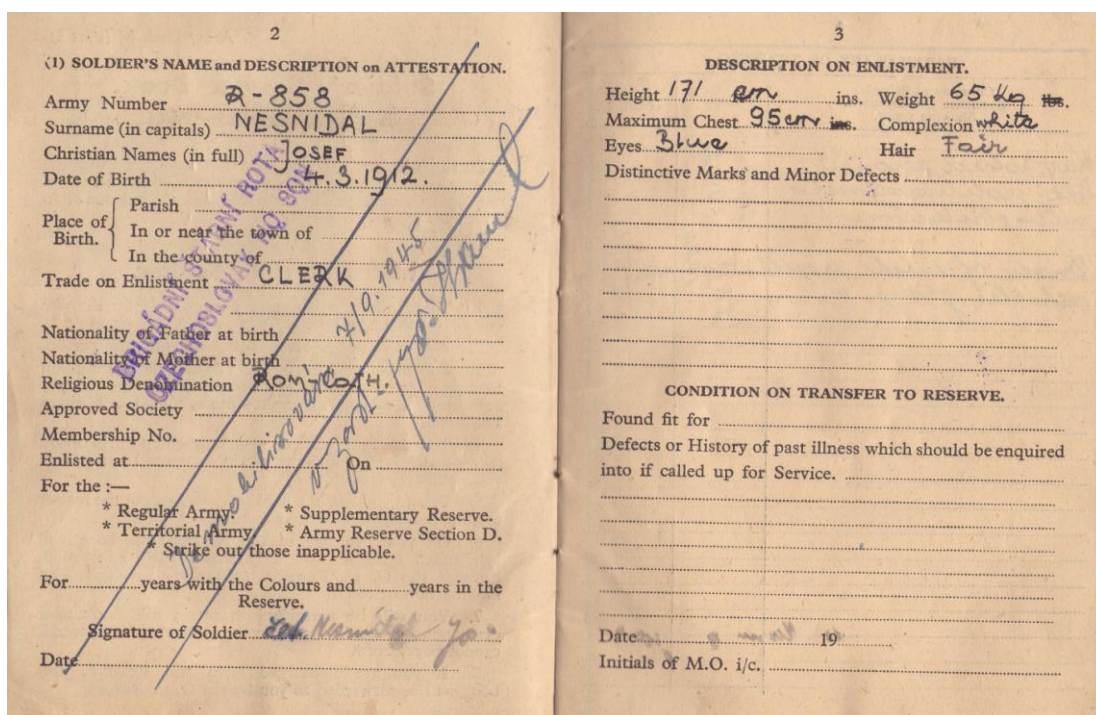 2
(1) SOLDIER'S NAME and DESCRIPTION on ATTESTATION.
Army Number R-858
Surname (in capitals) NESNIDAL
Christian Names (in full) JOSEF
Date of Birth 4.3.1912.
Place of Birth. Parish
In or near the town of
In the county of
Trade on Enlistment CLERK
Nationality of Father at birth
Nationality of Mother at birth
Religious Denomination Rom. Cath.
Approved Society
Membership No.
Enlisted at On
For the :—
* Regular Army. * Supplementary Reserve.
* Territorial Army * Army Reserve Section D.
* Strike out those inapplicable.
For years with the Colours and years in the
Reserve.
Signature of Soldier Nesnidal
Date
BRIGÁDNÍ ŠTÁBNÍ ROTA
CZECHOSLOVAK HQ SQN
7/9.1945
3
DESCRIPTION ON ENLISTMENT.
Height 171 cm ins. Weight 65 kg lbs.
Maximum Chest 95cm ins. Complexion white
Eyes Blue Hair Fair
Distinctive Marks and Minor Defects
CONDITION ON TRANSFER TO RESERVE.
Found fit for
Defects or History of past illness which should be enquired
into if called up for Service.
Date 19
Initials of M.O. i/c.